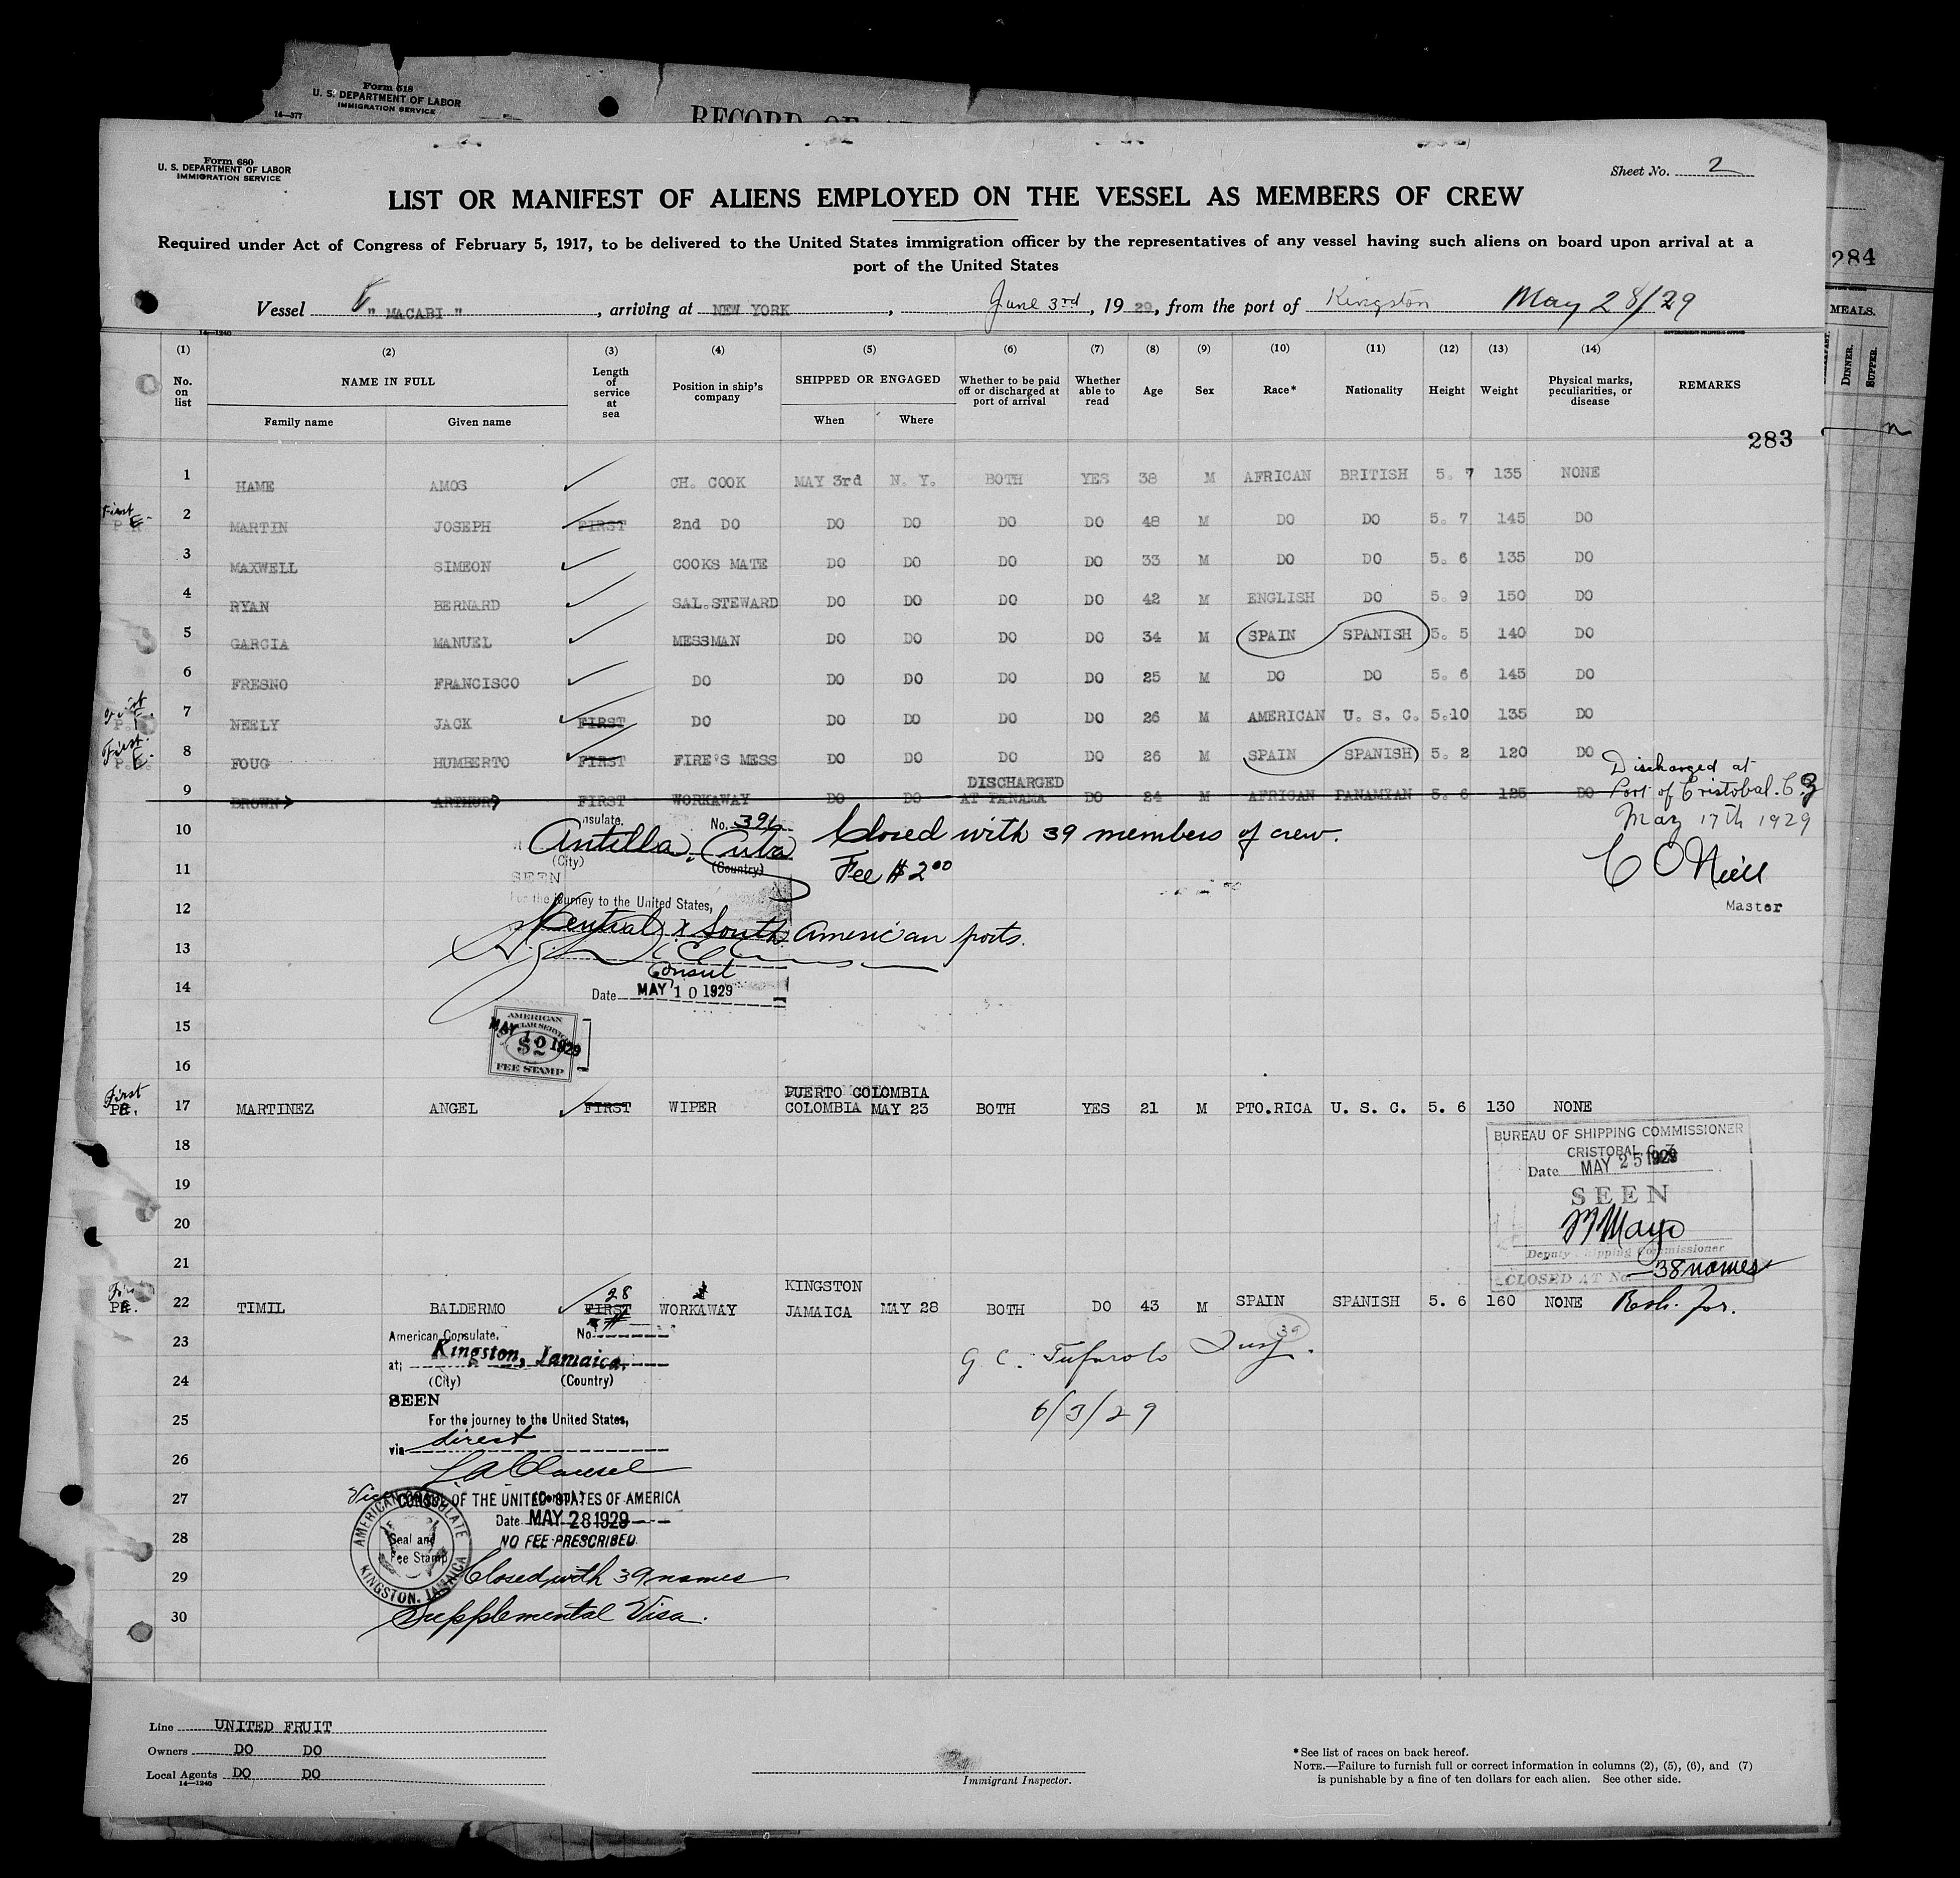 Form 618
U. S. DEPARTMENT OF LABOR
IMMIGRATION SERVICE
14—377
RECORD OF
Form 680
U. S. DEPARTMENT OF LABOR
IMMIGRATION SERVICE
Sheet No. 2
LIST OR MANIFEST OF ALIENS EMPLOYED ON THE VESSEL AS MEMBERS OF CREW
Required under Act of Congress of February 5, 1917, to be delivered to the United States immigration officer by the representatives of any vessel having such aliens on board upon arrival at a
port of the United States
284
Vessel " MACABI ", arriving at NEW YORK, June 3rd, 19 29, from the port of Kingston May 28/29
MEALS.
DINNER.
SUPPER.
14—1240
GOVERNMENT PRINTING OFFICE
(1) (2) (3) (4) (5) (6) (7) (8) (9) (10) (11) (12) (13) (14)
No. on list
NAME IN FULL
Family name Given name
Length of service at sea
Position in ship's company
SHIPPED OR ENGAGED
When Where
Whether to be paid off or discharged at port of arrival
Whether able to read
Age
Sex
Race*
Nationality
Height
Weight
Physical marks, peculiarities, or disease
REMARKS
283
1 HAME AMOS CH. COOK MAY 3rd N. Y. BOTH YES 38 M AFRICAN BRITISH 5. 7 135 NONE
First P.E. 2 MARTIN JOSEPH FIRST 2nd DO DO DO DO DO 48 M DO DO 5. 7 145 DO
3 MAXWELL SIMEON COOKS MATE DO DO DO DO 33 M DO DO 5. 6 135 DO
4 RYAN BERNARD SAL.STEWARD DO DO DO DO 42 M ENGLISH DO 5. 9 150 DO
5 GARCIA MANUEL MESSMAN DO DO DO DO 34 M SPAIN SPANISH 5. 5 140 DO
6 FRESNO FRANCISCO DO DO DO DO DO 25 M DO DO 5. 6 145 DO
First P.E. 7 NEELY JACK FIRST DO DO DO DO DO 26 M AMERICAN U. S. C. 5.10 135 DO
First P.E. 8 FOUG HUMBERTO FIRST FIRE'S MESS DO DO DO DO 26 M SPAIN SPANISH 5. 2 120 DO
DISCHARGED
9 BROWN ARTHUR FIRST WORKAWAY DO DO AT PANAMA DO 24 M AFRICAN PANAMYAN 5. 6 125 DO
Discharged at
Port of Cristobal. C.Z
May 17th 1929
C O'Neill
Master
10
11
12
13
14
15
16
nsulate. No. 396
Antilla, Cuba
(City) (Country)
Closed with 39 members of crew.
Fee $2.00
SEEN
For the journey to the United States,
Central & South American ports.
Consul
Date MAY 10 1929
AMERICAN
CONSULAR SERVICE
$2
FEE STAMP
MAY 10 1929
PUERTO COLOMBIA
First PE. 17 MARTINEZ ANGEL FIRST WIPER COLOMBIA MAY 23 BOTH YES 21 M PTO.RICA U. S. C. 5. 6 130 NONE
18
19
20
21
BUREAU OF SHIPPING COMMISSIONER
CRISTOBAL, C. Z.
Date MAY 25 1929
SEEN
Mayo
Deputy Shipping Commissioner
CLOSED AT No. 38 names
KINGSTON
28
First PE. 22 TIMIL BALDERMO FIRST WORKAWAY JAMAICA MAY 28 BOTH DO 43 M SPAIN SPANISH 5. 6 160 NONE
23
24
25
26
27
28
29
30
American Consulate, No.
at; Kingston, Jamaica.
(City) (Country)
SEEN
For the journey to the United States,
via direct
Vice CONSUL OF THE UNITED STATES OF AMERICA
Date MAY 28 1929
NO FEE PRESCRIBED.
AMERICAN CONSULATE
KINGSTON, JAMAICA
Seal and
Fee Stamp
Closed with 39 names
Supplemental Visa.
39
6/3/29
Line UNITED FRUIT
Owners DO DO
Local Agents DO DO
14—1240
Immigrant Inspector.
*See list of races on back hereof.
NOTE.—Failure to furnish full or correct information in columns (2), (5), (6), and (7)
is punishable by a fine of ten dollars for each alien. See other side.